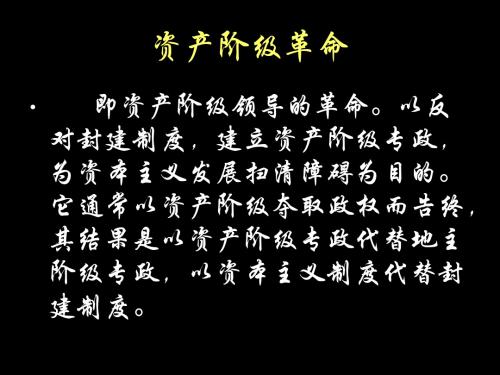 资产阶级革命
• 即资产阶级领导的革命。以反
对封建制度，建立资产阶级专政，
为资本主义发展扫清障碍为目的。
它通常以资产阶级夺取政权而告终，
其结果是以资产阶级专政代替地主
阶级专政，以资本主义制度代替封
建制度。